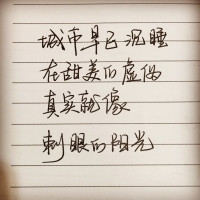 城市早已沉睡
在甜美的虚伪
真实就像
刺眼的阳光